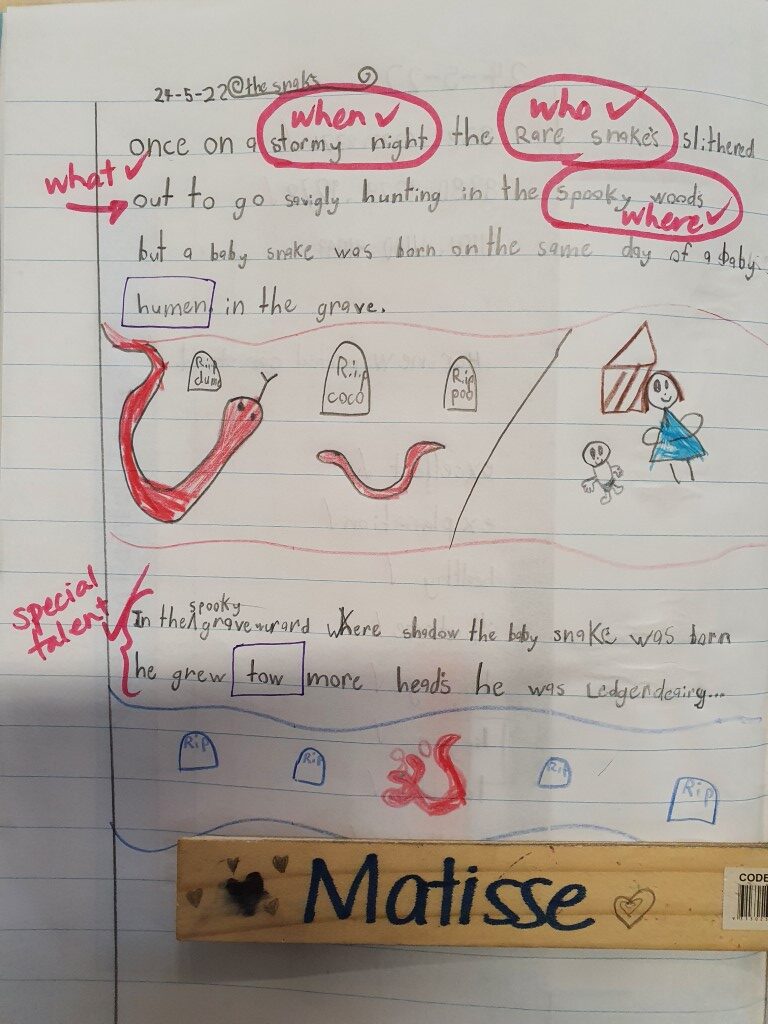 24-5-22 @the snaks
when ✓
who ✓
once on a stormy night the Rare snake's slithered
what ✓
out to go savigly hunting in the spooky woods
where ✓
but a baby snake was born on the same day of a baby
humen in the grave.
R.i.p R.i.p R.i.p
dum coco poo
special
talent
spooky
In the graveward where shadow the baby snake was born
he grew tow more head's he was Ledgerdeairy...
Rip Rip Rip Rip
Matisse
CODE